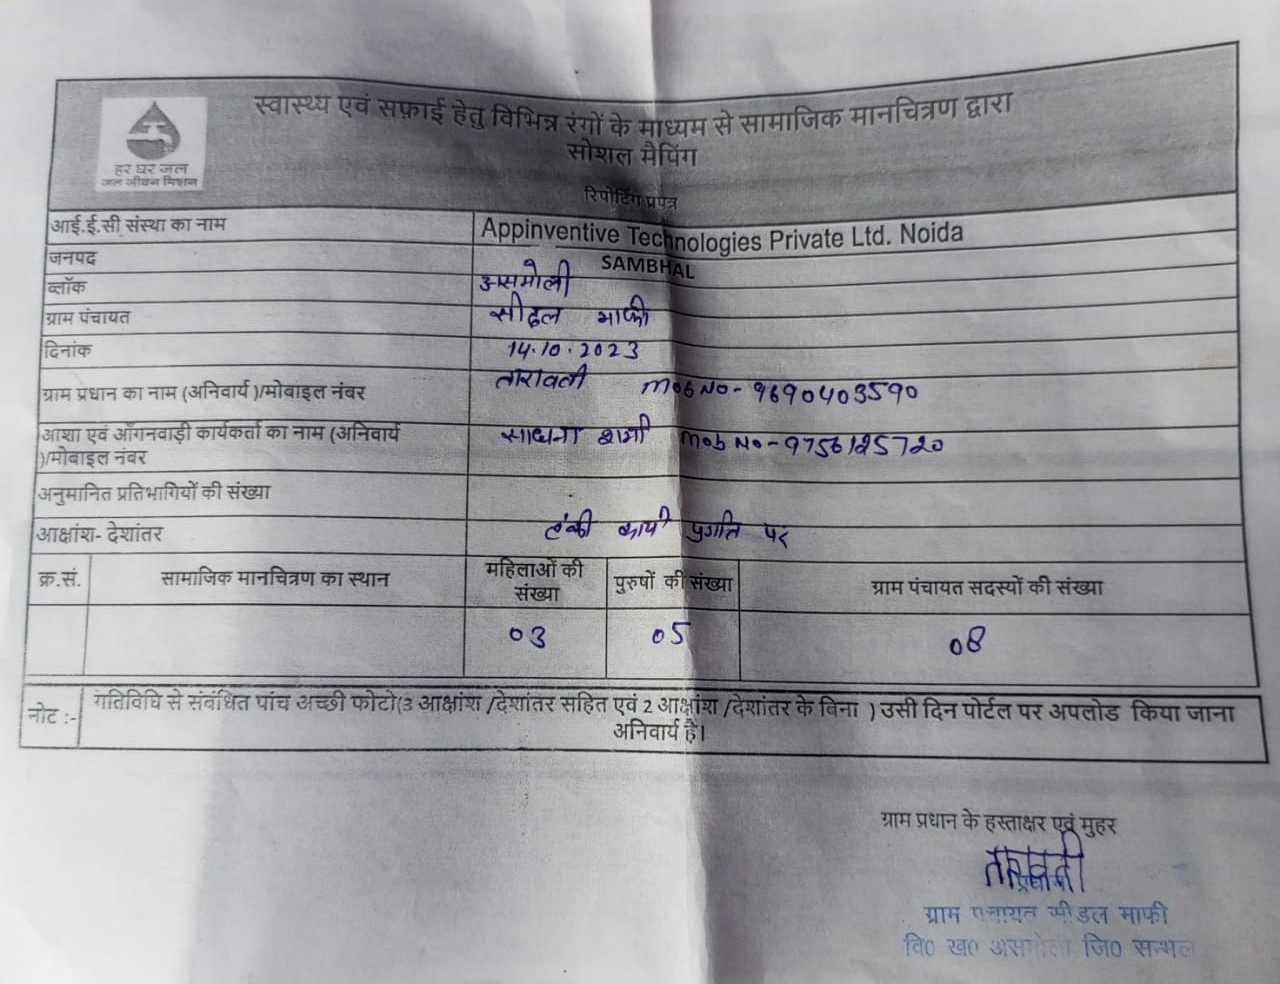 स्वास्थ्य एवं सफ़ाई हेतु विभिन्न रंगों के माध्यम से सामाजिक मानचित्रण द्वारा
सोशल मैपिंग
हर घर जल
जल जीवन मिशन
रिपोर्टिंग प्रपत्र
आई.ई.सी संस्था का नाम Appinventive Technologies Private Ltd. Noida
जनपद SAMBHAL
ब्लॉक असमोली
ग्राम पंचायत सीडल माफी
दिनांक 14.10.2023
ग्राम प्रधान का नाम (अनिवार्य )/मोबाइल नंबर तारावती Mob No- 9690403590
आशा एवं आँगनवाड़ी कार्यकर्ता का नाम (अनिवार्य
)/मोबाइल नंबर साधना शर्मा Mob No-9756125720
अनुमानित प्रतिभागियों की संख्या
आक्षांश- देशांतर टंकी कार्य प्रगति पर
क्र.सं. सामाजिक मानचित्रण का स्थान महिलाओं की संख्या पुरुषों की संख्या ग्राम पंचायत सदस्यों की संख्या
03 05 08
नोट :- गतिविधि से संबंधित पांच अच्छी फोटो(3 आक्षांश /देशांतर सहित एवं 2 आक्षांश /देशांतर के बिना ) उसी दिन पोर्टल पर अपलोड किया जाना
अनिवार्य है।
ग्राम प्रधान के हस्ताक्षर एवं मुहर
तारावती
ग्राम पंचायत सीडल माफी
वि0 ख0 असमोली जि0 सम्भल